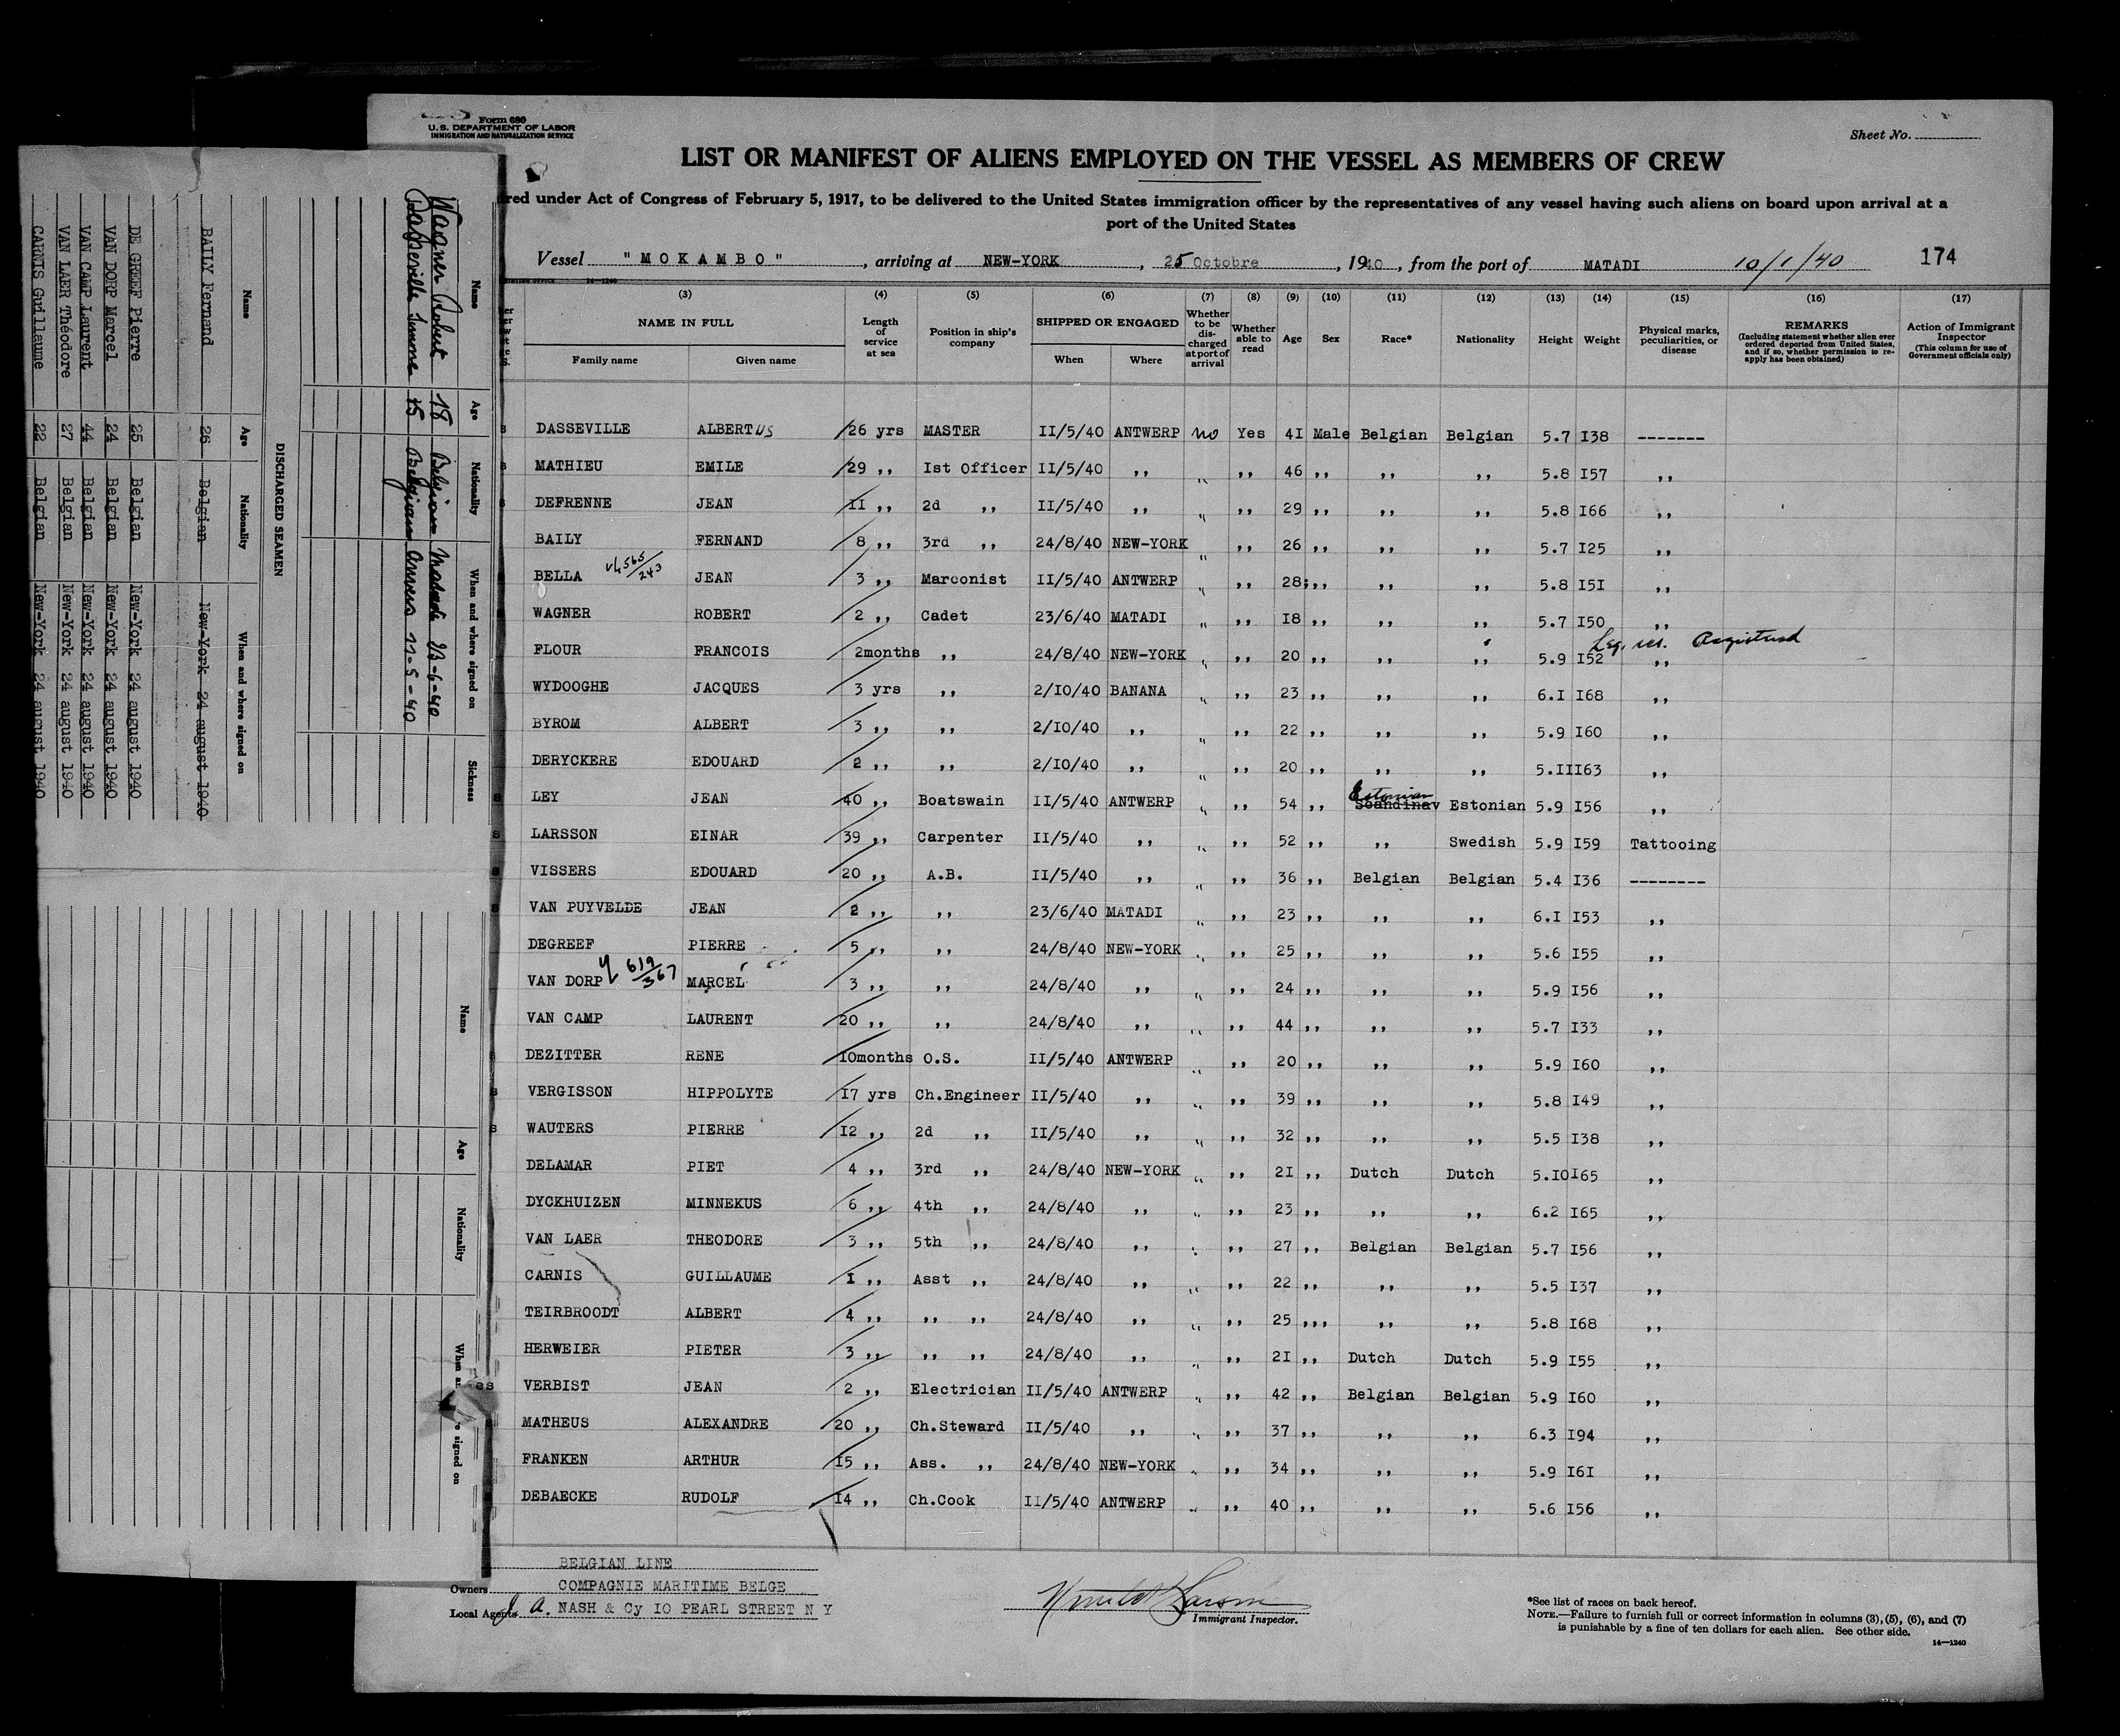 Form 689
U.S. DEPARTMENT OF LABOR
IMMIGRATION AND NATURALIZATION SERVICE
Sheet No.
LIST OR MANIFEST OF ALIENS EMPLOYED ON THE VESSEL AS MEMBERS OF CREW
red under Act of Congress of February 5, 1917, to be delivered to the United States immigration officer by the representatives of any vessel having such aliens on board upon arrival at a
port of the United States
Vessel "MOKAMBO", arriving at NEW-YORK, 25 Octobre, 1940, from the port of MATADI 10/1/40 174
(3) (4) (5) (6) (7) (8) (9) (10) (11) (12) (13) (14) (15) (16) (17)
NAME IN FULL Family name Given name
Length of service at sea
Position in ship's company
SHIPPED OR ENGAGED When Where
Whether to be discharged at port of arrival
Whether able to read
Age Sex Race* Nationality Height Weight
Physical marks, peculiarities, or disease
REMARKS
(Including statement whether alien ever ordered deported from United States, and if so, whether permission to re-apply has been obtained)
Action of Immigrant Inspector
(This column for use of Government officials only)
DASSEVILLE ALBERTUS 26 yrs MASTER II/5/40 ANTWERP no Yes 4I Male Belgian Belgian 5.7 I38 -------
MATHIEU EMILE 29 ,, Ist Officer II/5/40 ,, ,, ,, 46 ,, ,, ,, 5.8 I57 ,,
DEFRENNE JEAN II ,, 2d ,, II/5/40 ,, ,, ,, 29 ,, ,, ,, 5.8 I66 ,,
BAILY FERNAND 8 ,, 3rd ,, 24/8/40 NEW-YORK ,, ,, 26 ,, ,, ,, 5.7 I25 ,,
BELLA 565/243 JEAN 3 ,, Marconist II/5/40 ANTWERP ,, ,, 28 ,, ,, ,, 5.8 I5I ,,
WAGNER ROBERT 2 ,, Cadet 23/6/40 MATADI ,, ,, I8 ,, ,, ,, 5.7 I50 ,,
FLOUR FRANCOIS 2months ,, 24/8/40 NEW-YORK ,, ,, 20 ,, ,, ,, 5.9 I52 ,, Leg. res. Registered
WYDOOGHE JACQUES 3 yrs ,, 2/IO/40 BANANA ,, ,, 23 ,, ,, ,, 6.I I68 ,,
BYROM ALBERT 3 ,, ,, 2/IO/40 ,, ,, ,, 22 ,, ,, ,, 5.9 I60 ,,
DERYCKERE EDOUARD 2 ,, ,, 2/IO/40 ,, ,, ,, 20 ,, ,, ,, 5.II I63 ,,
LEY JEAN 40 ,, Boatswain II/5/40 ANTWERP ,, ,, 54 ,, Scandinav Estonian Estonian 5.9 I56 ,,
LARSSON EINAR 39 ,, Carpenter II/5/40 ,, ,, ,, 52 ,, ,, Swedish 5.9 I59 Tattooing
VISSERS EDOUARD 20 ,, A.B. II/5/40 ,, ,, ,, 36 ,, Belgian Belgian 5.4 I36 --------
VAN PUYVELDE JEAN 2 ,, ,, 23/6/40 MATADI ,, ,, 23 ,, ,, ,, 6.I I53 ,,
DEGREEF PIERRE 5 ,, ,, 24/8/40 NEW-YORK ,, ,, 25 ,, ,, ,, 5.6 I55 ,,
VAN DORP 619/367 MARCEL 3 ,, ,, 24/8/40 ,, ,, ,, 24 ,, ,, ,, 5.9 I56 ,,
VAN CAMP LAURENT 20 ,, ,, 24/8/40 ,, ,, ,, 44 ,, ,, ,, 5.7 I33 ,,
DEZITTER RENE IOmonths O.S. II/5/40 ANTWERP ,, ,, 20 ,, ,, ,, 5.9 I60 ,,
VERGISSON HIPPOLYTE I7 yrs Ch.Engineer II/5/40 ,, ,, ,, 39 ,, ,, ,, 5.8 I49 ,,
WAUTERS PIERRE I2 ,, 2d ,, II/5/40 ,, ,, ,, 32 ,, ,, ,, 5.5 I38 ,,
DELAMAR PIET 4 ,, 3rd ,, 24/8/40 NEW-YORK ,, ,, 2I ,, Dutch Dutch 5.IO I65 ,,
DYCKHUIZEN MINNEKUS 6 ,, 4th ,, 24/8/40 ,, ,, ,, 23 ,, ,, ,, 6.2 I65 ,,
VAN LAER THEODORE 3 ,, 5th ,, 24/8/40 ,, ,, ,, 27 ,, Belgian Belgian 5.7 I56 ,,
CARNIS GUILLAUME I ,, Asst ,, 24/8/40 ,, ,, ,, 22 ,, ,, ,, 5.5 I37 ,,
TEIRBROODT ALBERT 4 ,, ,, ,, 24/8/40 ,, ,, ,, 25 ,,, ,, ,, 5.8 I68 ,,
HERWEIER PIETER 3 ,, ,, ,, 24/8/40 ,, ,, ,, 2I ,, Dutch Dutch 5.9 I55 ,,
VERBIST JEAN 2 ,, Electrician II/5/40 ANTWERP ,, ,, 42 ,, Belgian Belgian 5.9 I60 ,,
MATHEUS ALEXANDRE 20 ,, Ch.Steward II/5/40 ,, ,, ,, 37 ,, ,, ,, 6.3 I94 ,,
FRANKEN ARTHUR I5 ,, Ass. ,, 24/8/40 NEW-YORK ,, ,, 34 ,, ,, ,, 5.9 I6I ,,
DEBAECKE RUDOLF I4 ,, Ch.Cook II/5/40 ANTWERP ,, ,, 40 ,, ,, ,, 5.6 I56 ,,
BELGIAN LINE
Owners COMPAGNIE MARITIME BELGE
Local Agents J. A. NASH & Cy IO PEARL STREET N Y
Immigrant Inspector.
*See list of races on back hereof.
NOTE.—Failure to furnish full or correct information in columns (3), (5), (6), and (7)
is punishable by a fine of ten dollars for each alien. See other side.
14—1240
Name Age Nationality When and where signed on Sickness
Wagner Robert 18 Belgian Matadi 23-6-40
Dasseville Simone 15 Belgian Anvers 11-5-40
DISCHARGED SEAMEN
Name Age Nationality When and where signed on
BAILY Fernand 26 Belgian New-York 24 august 1940
DE GREEF Pierre 25 Belgian New-York 24 august 1940
VAN DORP Marcel 24 Belgian New-York 24 august 1940
VAN CAMP Laurent 44 Belgian New-York 24 august 1940
VAN LAER Théodore 27 Belgian New-York 24 august 1940
CARNIS Guillaume 22 Belgian New-York 24 august 1940
Name Age Nationality When signed on